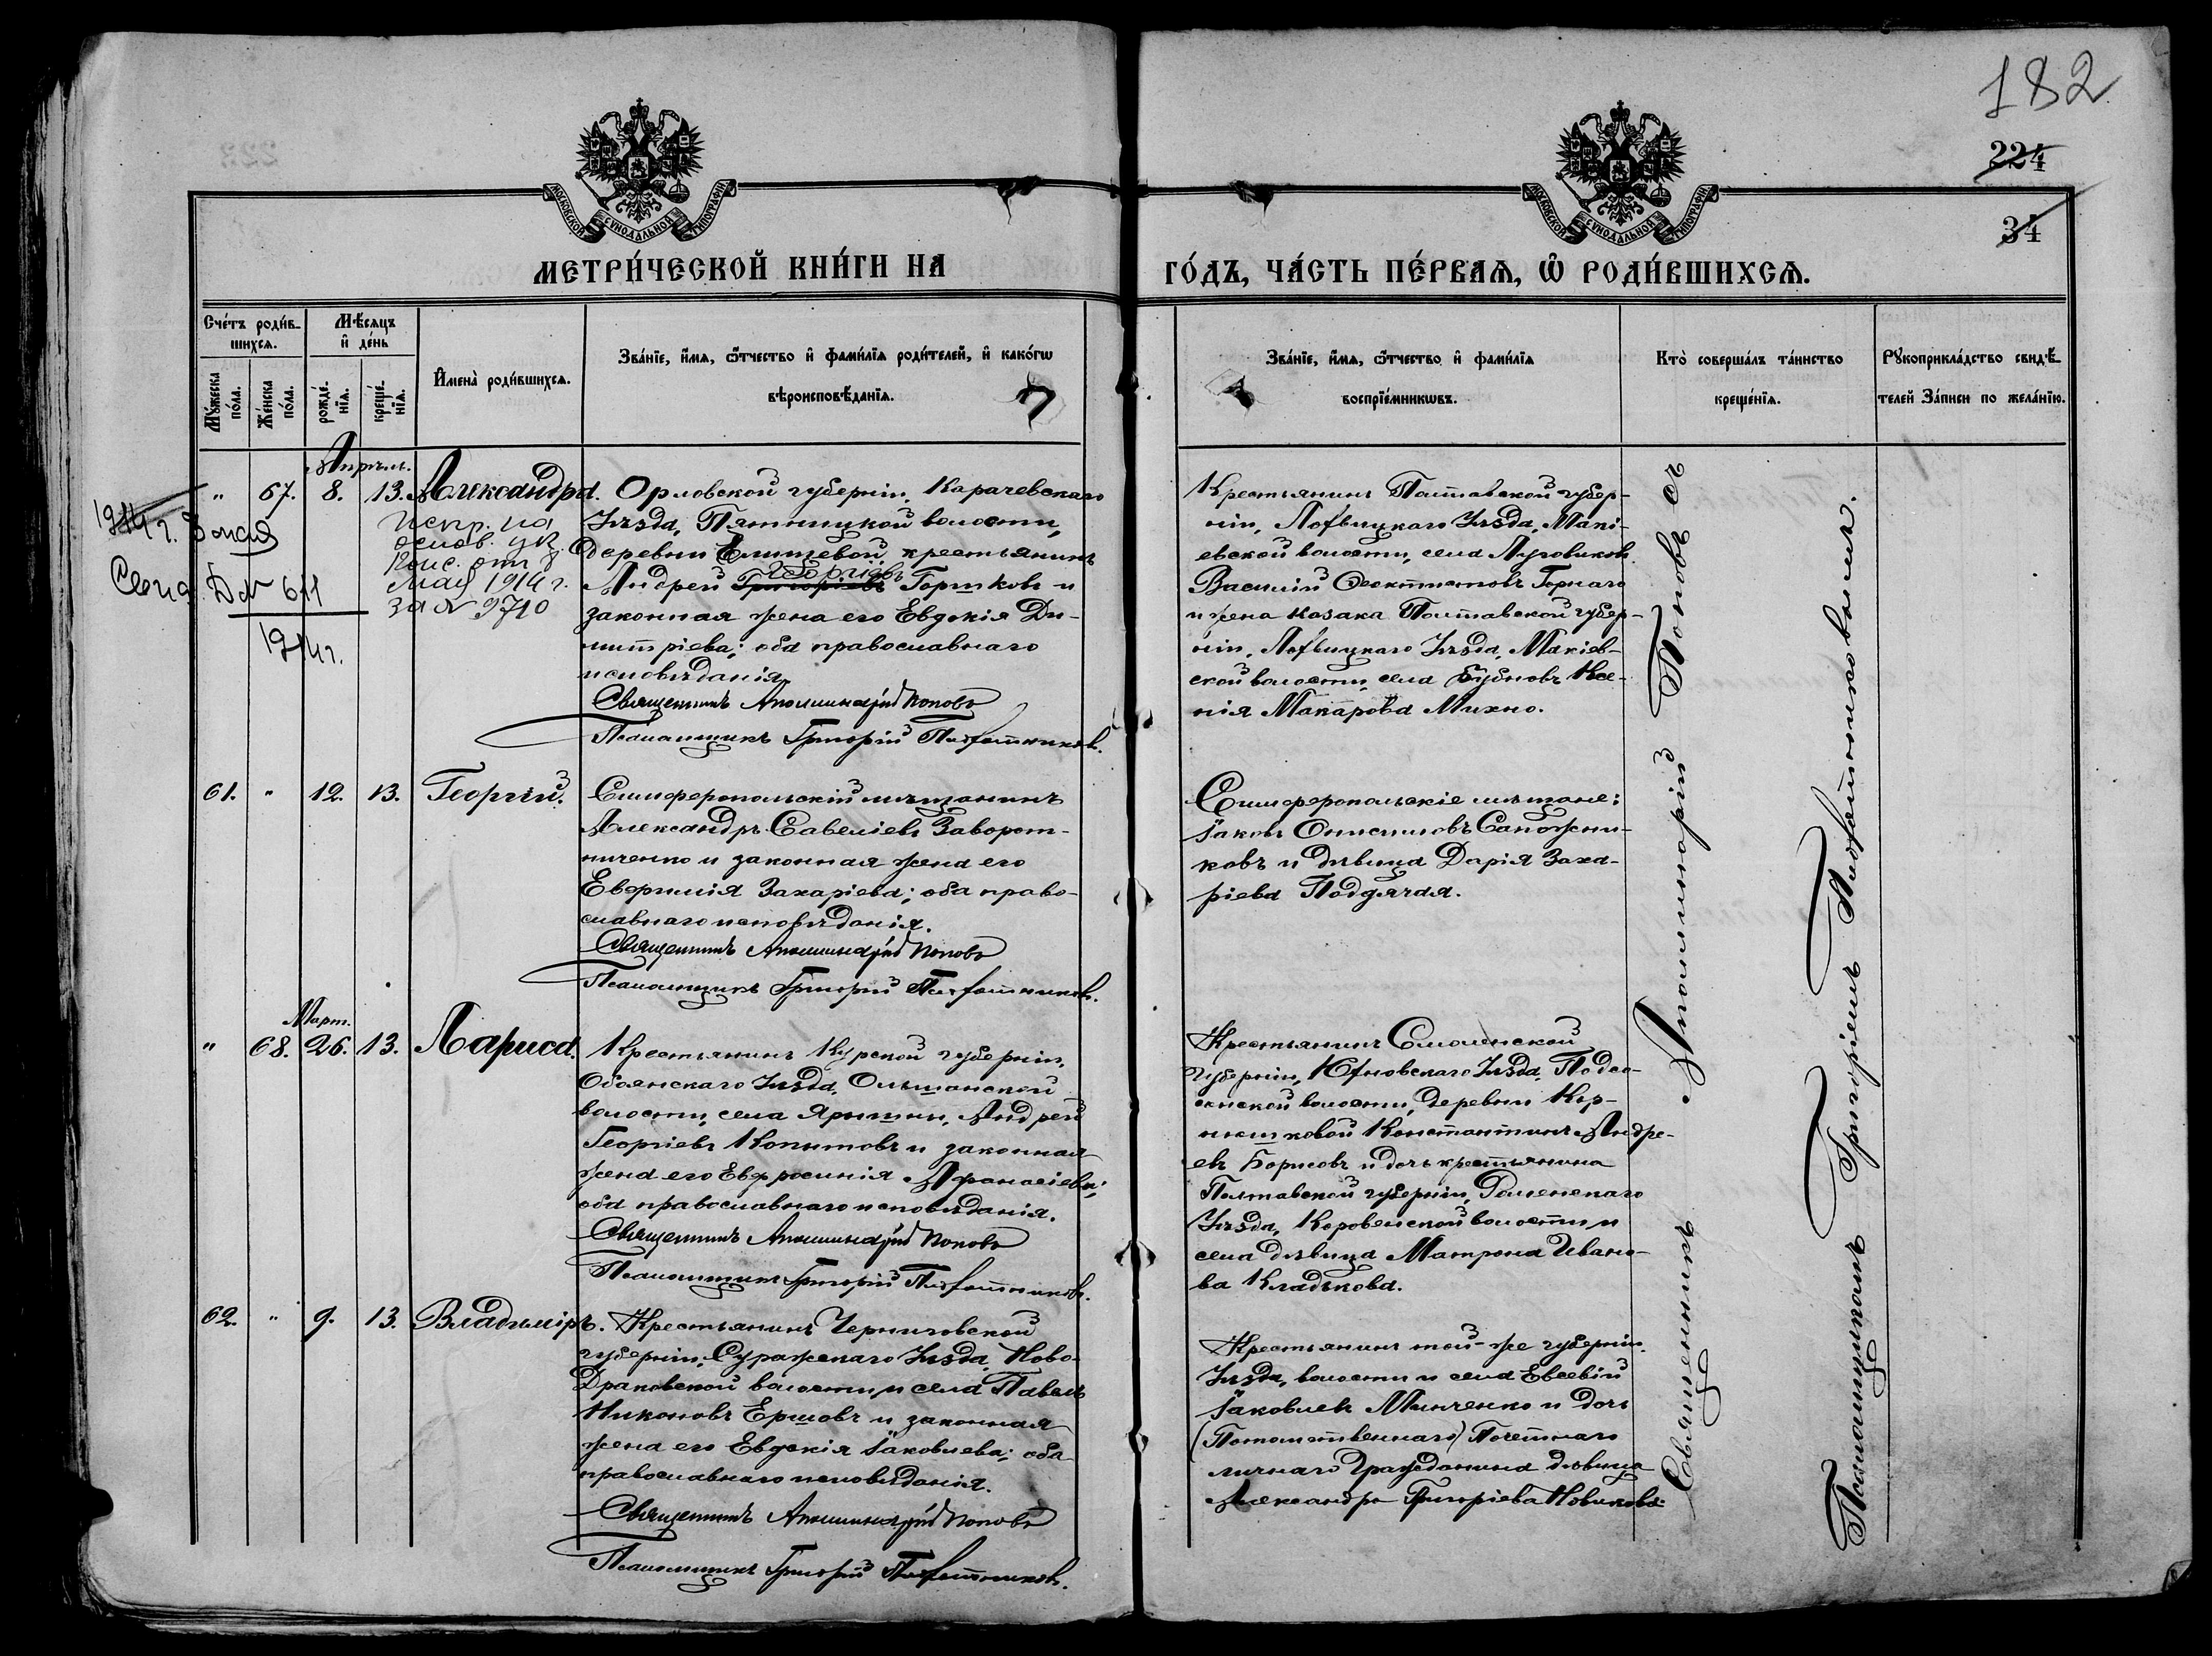 182
224
34
МОСКОВСКОЙ СѴНОДАЛЬНОЙ ТИПОГРАФІИ
МОСКОВСКОЙ СѴНОДАЛЬНОЙ ТИПОГРАФІИ
МЕТРИ́ЧЕСКОЙ КНИ́ГИ НА
ГО́ДЪ, ЧА́СТЬ ПЕ́РВАѦ, Ѽ РОДИ́ВШИХСѦ.
Сче́тъ роди́в-
шихсѧ.
Мѣ́сѧцъ
и҆ де́нь
Мꙋ́жеска
по́ла.
Же́нска
по́ла.
рожде́-
нїѧ.
креще́-
нїѧ.
И҆мена̀ роди́вшихсѧ.
Зва́нїе, и҆́мѧ, ѻ҆́тчество и҆ фами́лїѧ роди́телей, и҆ како́гѡ
вѣроисповѣ́данїѧ.
Зва́нїе, и҆́мѧ, ѻ҆́тчество и҆ фами́лїѧ
воспрїе́мникѡвъ.
Кто̀ соверша́лъ та́инство
креще́нїѧ.
Рꙋкоприкла́дство свидѣ́-
телей За́писи по жела́нїю.
Апрѣль.
" 67. 8. 13. Александра.
1914 г. 8 мая
№ 611
1914 г.
Испр. на
основ. ук.
Конс. отъ 8
мая 1914 г.
за № 9710
Орловской губерніи, Карачевскаго
Уѣзда, Пятницкой волости,
деревни Елишевой крестьянинъ
Георгіевъ
Андрей Григорьевъ Горшковъ и
законная жена его Евдокія Ди-
митріева; оба православнаго
исповѣданія.
Священникъ Аполлинарій Поповъ
Псаломщикъ Григорій
Крестьянинъ Полтавской губер-
ніи, Лохвицкаго Уѣзда, Макі-
евской волости, села Луговиковъ
Василій Ѳеоктистовъ Горкаго
и жена казака Полтавской губер-
ніи, Лохвицкаго Уѣзда, Макіев-
ской волости, села Бубновъ Ксе-
нія Макарова Михно.
61. " 12. 13. Георгій.
Симферопольскій мѣщанинъ
Александръ Савеліевъ Заворот-
ниченко и законная жена его
Евфимія Захаріева; оба право-
славнаго исповѣданія.
Священникъ Аполлинарій Поповъ
Псаломщикъ Григорій
Симферопольскіе мѣщане:
Іаковъ Онисимовъ Сапожни-
ковъ и дѣвица Дарія Заха-
ріева Поддячая.
Март.
" 68. 26. 13. Лариса.
Крестьянинъ Курской губерніи,
Обоянскаго Уѣзда, Ольшанской
волости, села Ярыгины, Андрей
Георгіевъ Копытовъ и законная
жена его Евфросинія Афанасіева;
оба православнаго исповѣданія.
Священникъ Аполлинарій Поповъ
Псаломщикъ Григорій
Крестьянинъ Смоленской
губерніи, Юхновскаго Уѣзда, Подсо-
сенской волости, деревни Кор-
нюшковой Константинъ Андре-
евъ Борисовъ и дочь крестьянина
Полтавской губерніи, Роменскаго
Уѣзда, Коровенской волости и
села дѣвица Матрона Ивано-
ва Кладькова.
62. " 9. 13. Владиміръ.
Крестьянинъ Черниговской
губерніи, Суражскаго Уѣзда, Ново-
Драковской волости и села Павелъ
Никоновъ Ершовъ и законная
жена его Евдокія Іаковлева; оба
православнаго исповѣданія.
Священникъ Аполлинарій Поповъ
Псаломщикъ Григорій
Крестьянинъ той-же губерніи,
Уѣзда, волости и села Евсевій
Іаковлевъ Минченко и дочь
(Потомственнаго) Почетнаго
личнаго Гражданина дѣвица
Александра Григоріева Новикова.
Священникъ Аполлинарій Поповъ съ
Псаломщикомъ Григоріемъ